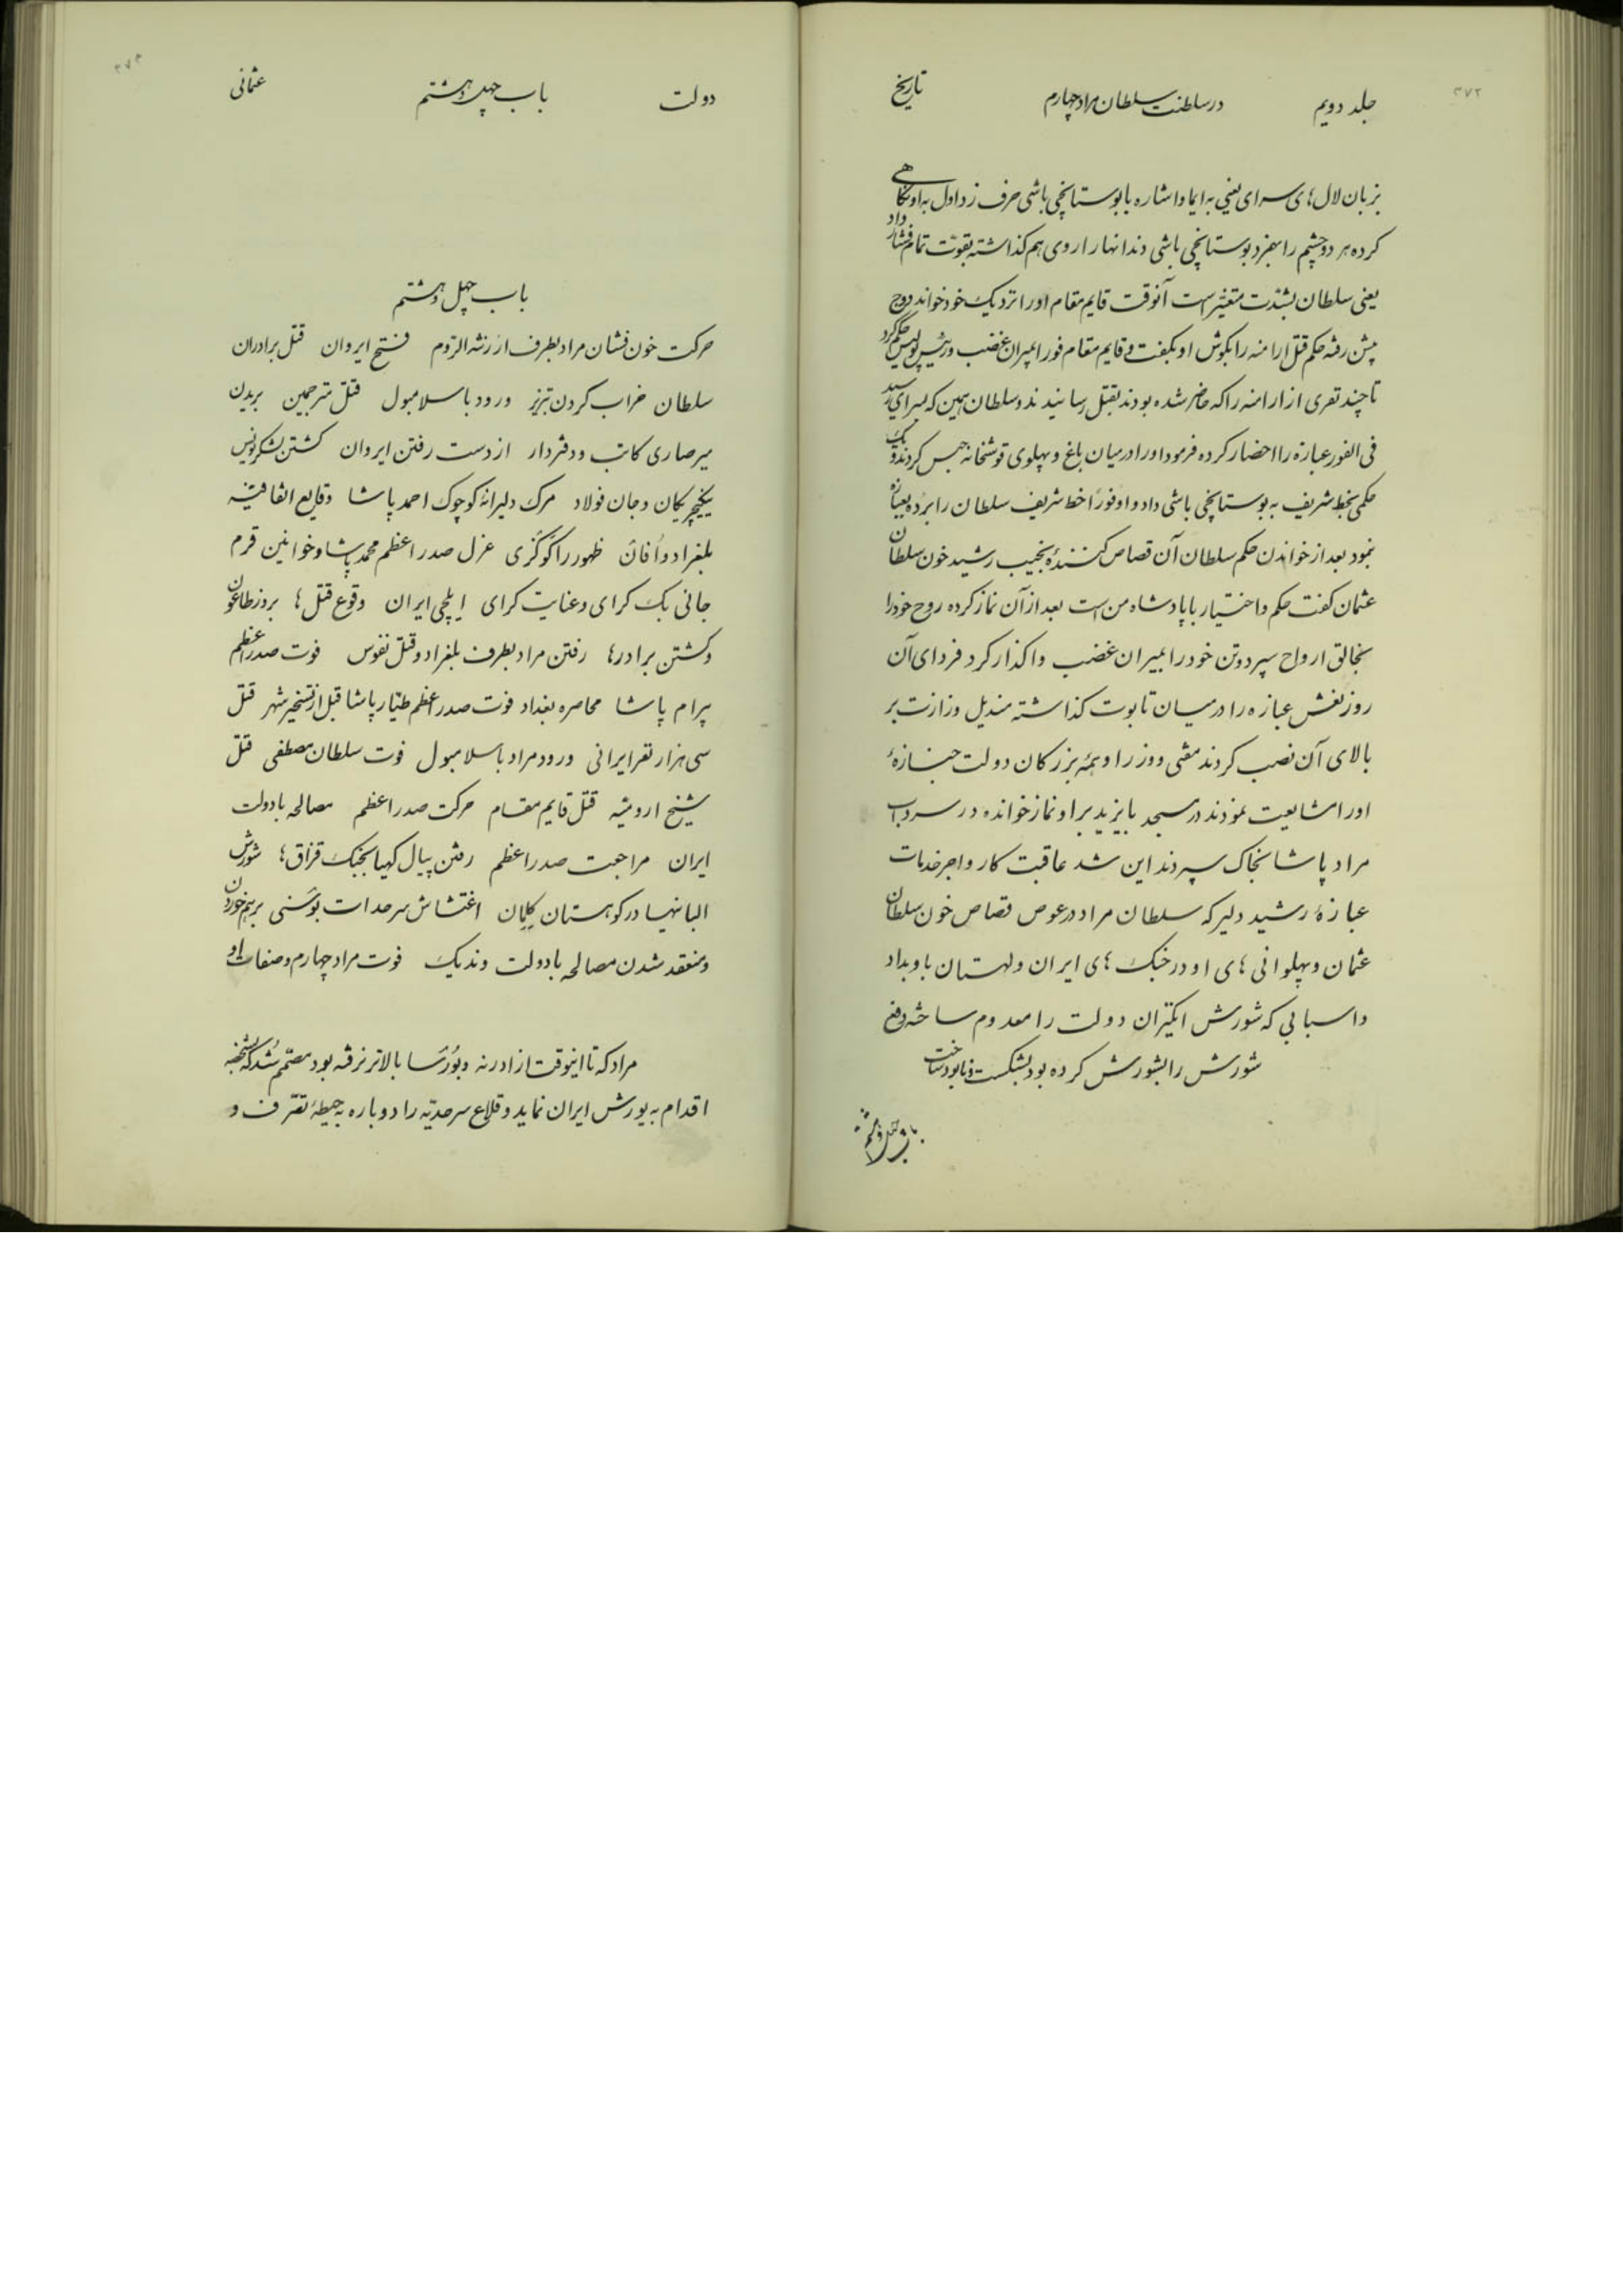 ۳۷۲
جلد دویم در سلطنت سلطان مراد چهارم تاریخ
بزبان لال‌های سرای یعنی به ایما و اشاره با بوستانچی باشی حرف زد اول به او نگاهی
کرده هر دو چشم را بهم زد بوستانچی باشی دندانها را روی هم کذاشته بقوت تمام فشار داد
یعنی سلطان بشدت متغیر است آنوقت قایم مقام او را نزدیک خود خواند
پیش رفته حکم قتل ارامنه را بکوش او بکفت و قایم مقام فورا بمیران غضب و رئیس پولیس حکم کرد
تا چند نفری از ارامنه را که حاضر شده بودند بقتل رسانیدند و سلطان همین که بسرای رسید
فی الفور عبازه را احضار کرده فرمود او را در میان باغ و پهلوی قوشخانه حبس کردند و یک
حکمی بخط شریف به بوستانچی باشی داد و او فوراً خط شریف سلطان را برده بعبازه
نمود بعد از خواندن حکم سلطان آن قصاص کنندهٔ نجیب رشید خون سلطان
عثمان کفت حکم و اختیار با پادشاه من است بعد از آن نماز کرده روح خود را
بخالق ارواح سپرد و تن خود را بمیران غضب واکذار کرد فردای آن
روز نعش عبازه را در میان تابوت کذاشته مندیل وزارت بر
بالای آن نصب کردند مفتی و وزرا و همه بزرکان دولت جنازهٔ
او را مشایعت نمودند در مسجد بایزید بر او نماز خوانده در سرداب
مراد پاشا بخاک سپردند این شد عاقبت کار و اجر خدمات
عبازهٔ رشید دلیر که سلطان مراد در عوض قصاص خون سلطان
عثمان و پهلوانی های او در جنک های ایران و لهستان باو بداد
و اسبابی که شورش انکیزان دولت را معدوم ساخته دفع
شورش را بشورش کرده بود بشکست و نابود ساخت
باب چهل و هشتم
۳۷۳
دولت باب چهل و هشتم عثمانی
باب چهل و هشتم
حرکت خون فشان مراد بطرف ارزنة الروم فتح ایروان قتل برادران
سلطان خراب کردن تبریز ورود باسلامبول قتل مترجمین بریدن
سر صاری کاتب و دفتردار از دست رفتن ایروان کشتن لشکرنویس
ینکیچریکان و جان فولاد مرک دلیرانهٔ کوچوک احمد پاشا وقایع اتفاقیه
بلغراد و اُفاتن ظهور راکوکزی عزل صدر اعظم محمد پاشا و خوانین قرم
جانی بک کرای و عنایت کرای ایلچی ایران وقوع قتل‌ها بروز طاعون
و کشتن برادرها رفتن مراد بطرف بلغراد و قتل نفوس فوت صدر اعظم
پرام پاشا محاصره بغداد فوت صدر اعظم طیار پاشا قبل از تسخیر شهر قتل
سی هزار نفر ایرانی ورود مراد باسلامبول فوت سلطان مصطفی قتل
شیخ ارومیه قتل قایم مقام حرکت صدر اعظم مصالحه با دولت
ایران مراجعت صدر اعظم رفتن پیال کهیا بجنک قزاق‌ها شورش
البانیها در کوهستان اغتشاش سرحدات بوسنی برهم خوردن
و منعقد شدن مصالحه با دولت وندیک فوت مراد چهارم و صفات او
مراد که تا اینوقت از ادرنه و بورسا بالاتر نرفته بود مصمم شد که بشخصه
اقدام به یورش ایران نماید و قلاع سرحدیه را دوباره به حیطهٔ تصرف و